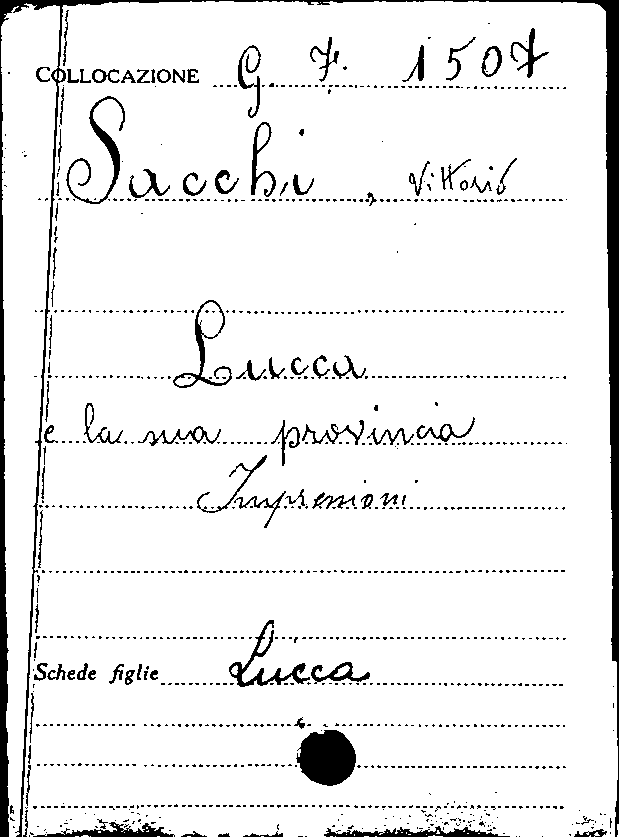 COLLOCAZIONE G. 7. 1507
Sacchi, Vittorio
Lucca
e la sua provincia
Impressioni
Schede figlie Lucca